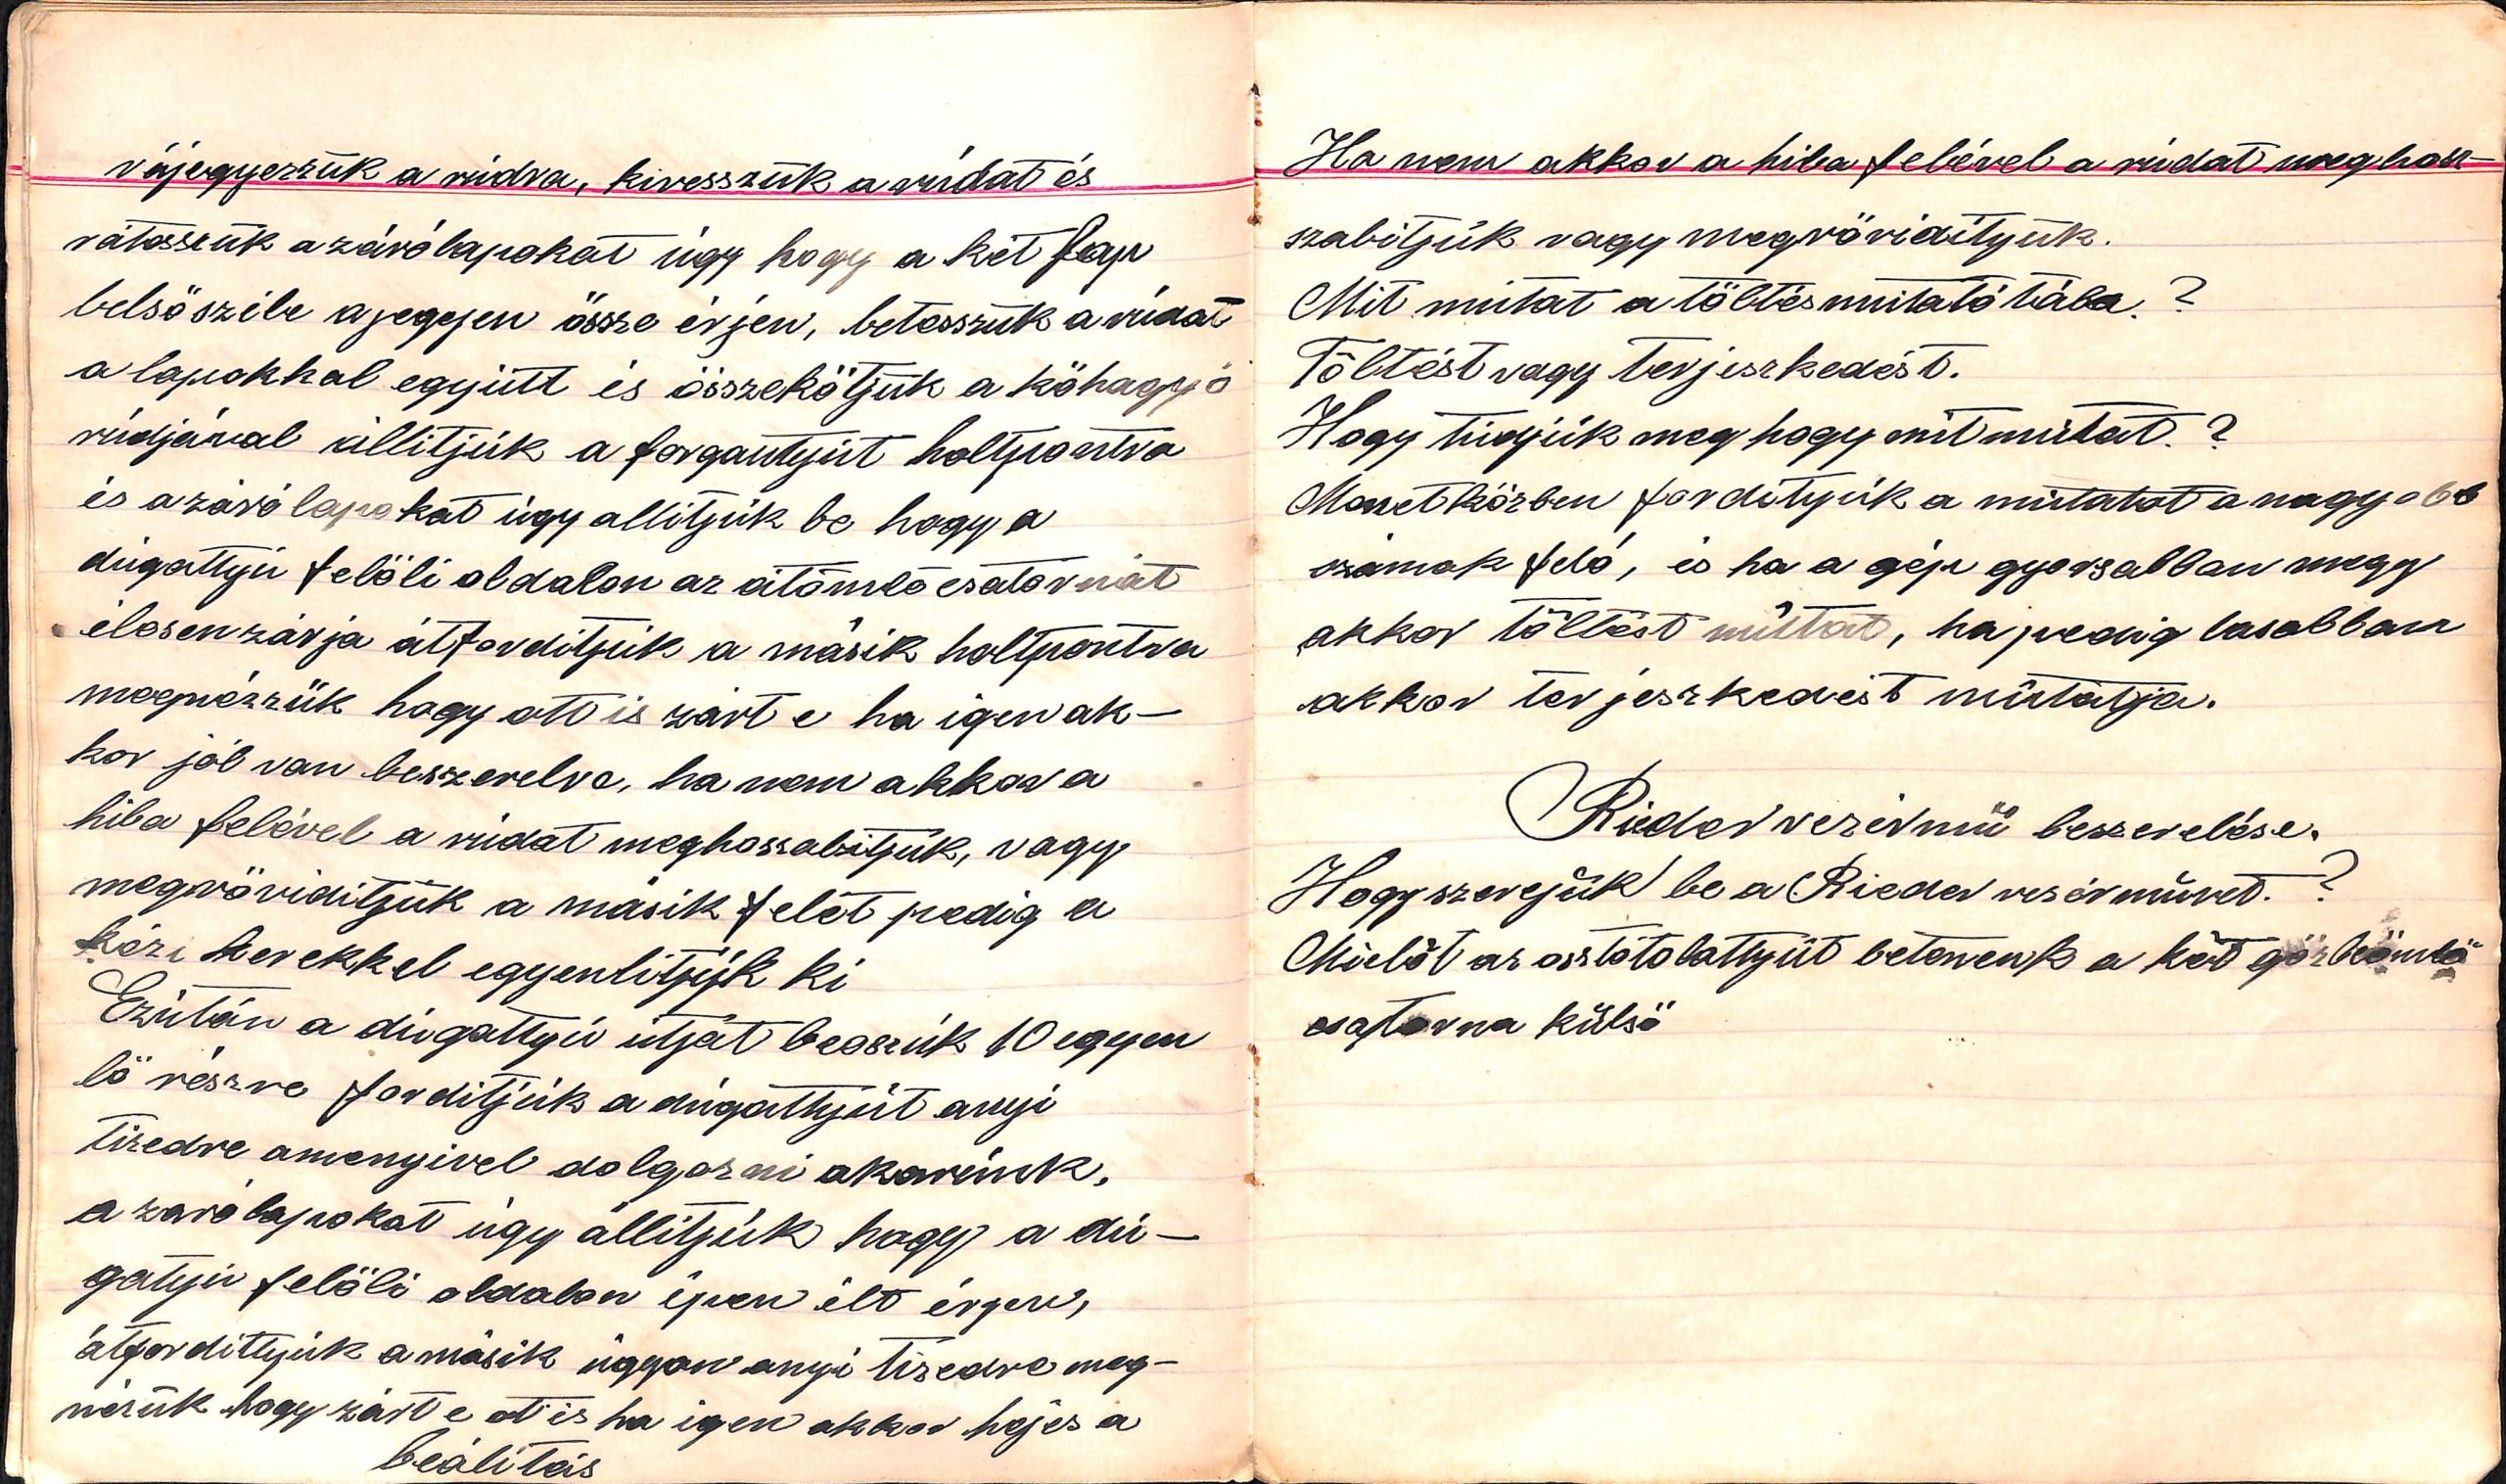 rájegyezzük a rúdra, kivesszük a rúdat és
rátesszük a zárólapokat úgy hogy a két lap
belsőszéle a jegyen össze érjen, betesszük a rúdat
a lapokkal együtt és összekötjük a kőhagyó
rúdjával állitjúk a forgantyút holtpontra
és a záró lapokat úgy allitjúk be hogy a
dúgattyú felöli oldalon az átömlö csatornát
élesen zárja átforditjúk a másik holtpontra
megnézzük hogy ott is zárt e ha igen ak-
kor jól van beszerelve, ha nem akkor a
hiba felével a rúdat meghosszabitjúk, vagy
megröviditjük a másik felét pedig a
kézi kerekkel egyenlitjük ki
Ezútán a dúgattyú útját beoszúk 10 egyen
lö részre forditjúk a dúgattyút anyi
tizedre amenyivel dolgozni akarúnk.
a zarólapokat úgy állitjúk hogy a dú-
gatyú felöli oldalon épen élt érjen,
átfordittyúk a másik úgyan anyi tizedre meg-
nézük hogy zárt e ot is ha igen akkor hejes a
beálitás
Ha nem akkor a hiba felével a rúdat meghosz-
szabitjúk vagy megrövidityük.
Mit mútat a töltésmútató tábla.?
Töltést vagy terjeszkedést.
Hogy túdjúk meg hogy mit mútat.?
Menetközben fordityúk a mútatót a nagyobb
számok felé, és ha a gép gyorsabban megy
akkor töltést mútat, ha pedig lasabban
akkor terjeszkedést mútatja.
Rieder vezérmü beszerelése.
Hogy szerejük be a Rieder vezérmüvet.?
Mielőt az osztótolattyút betenenk a két gözbeömlö
csatorna külsö